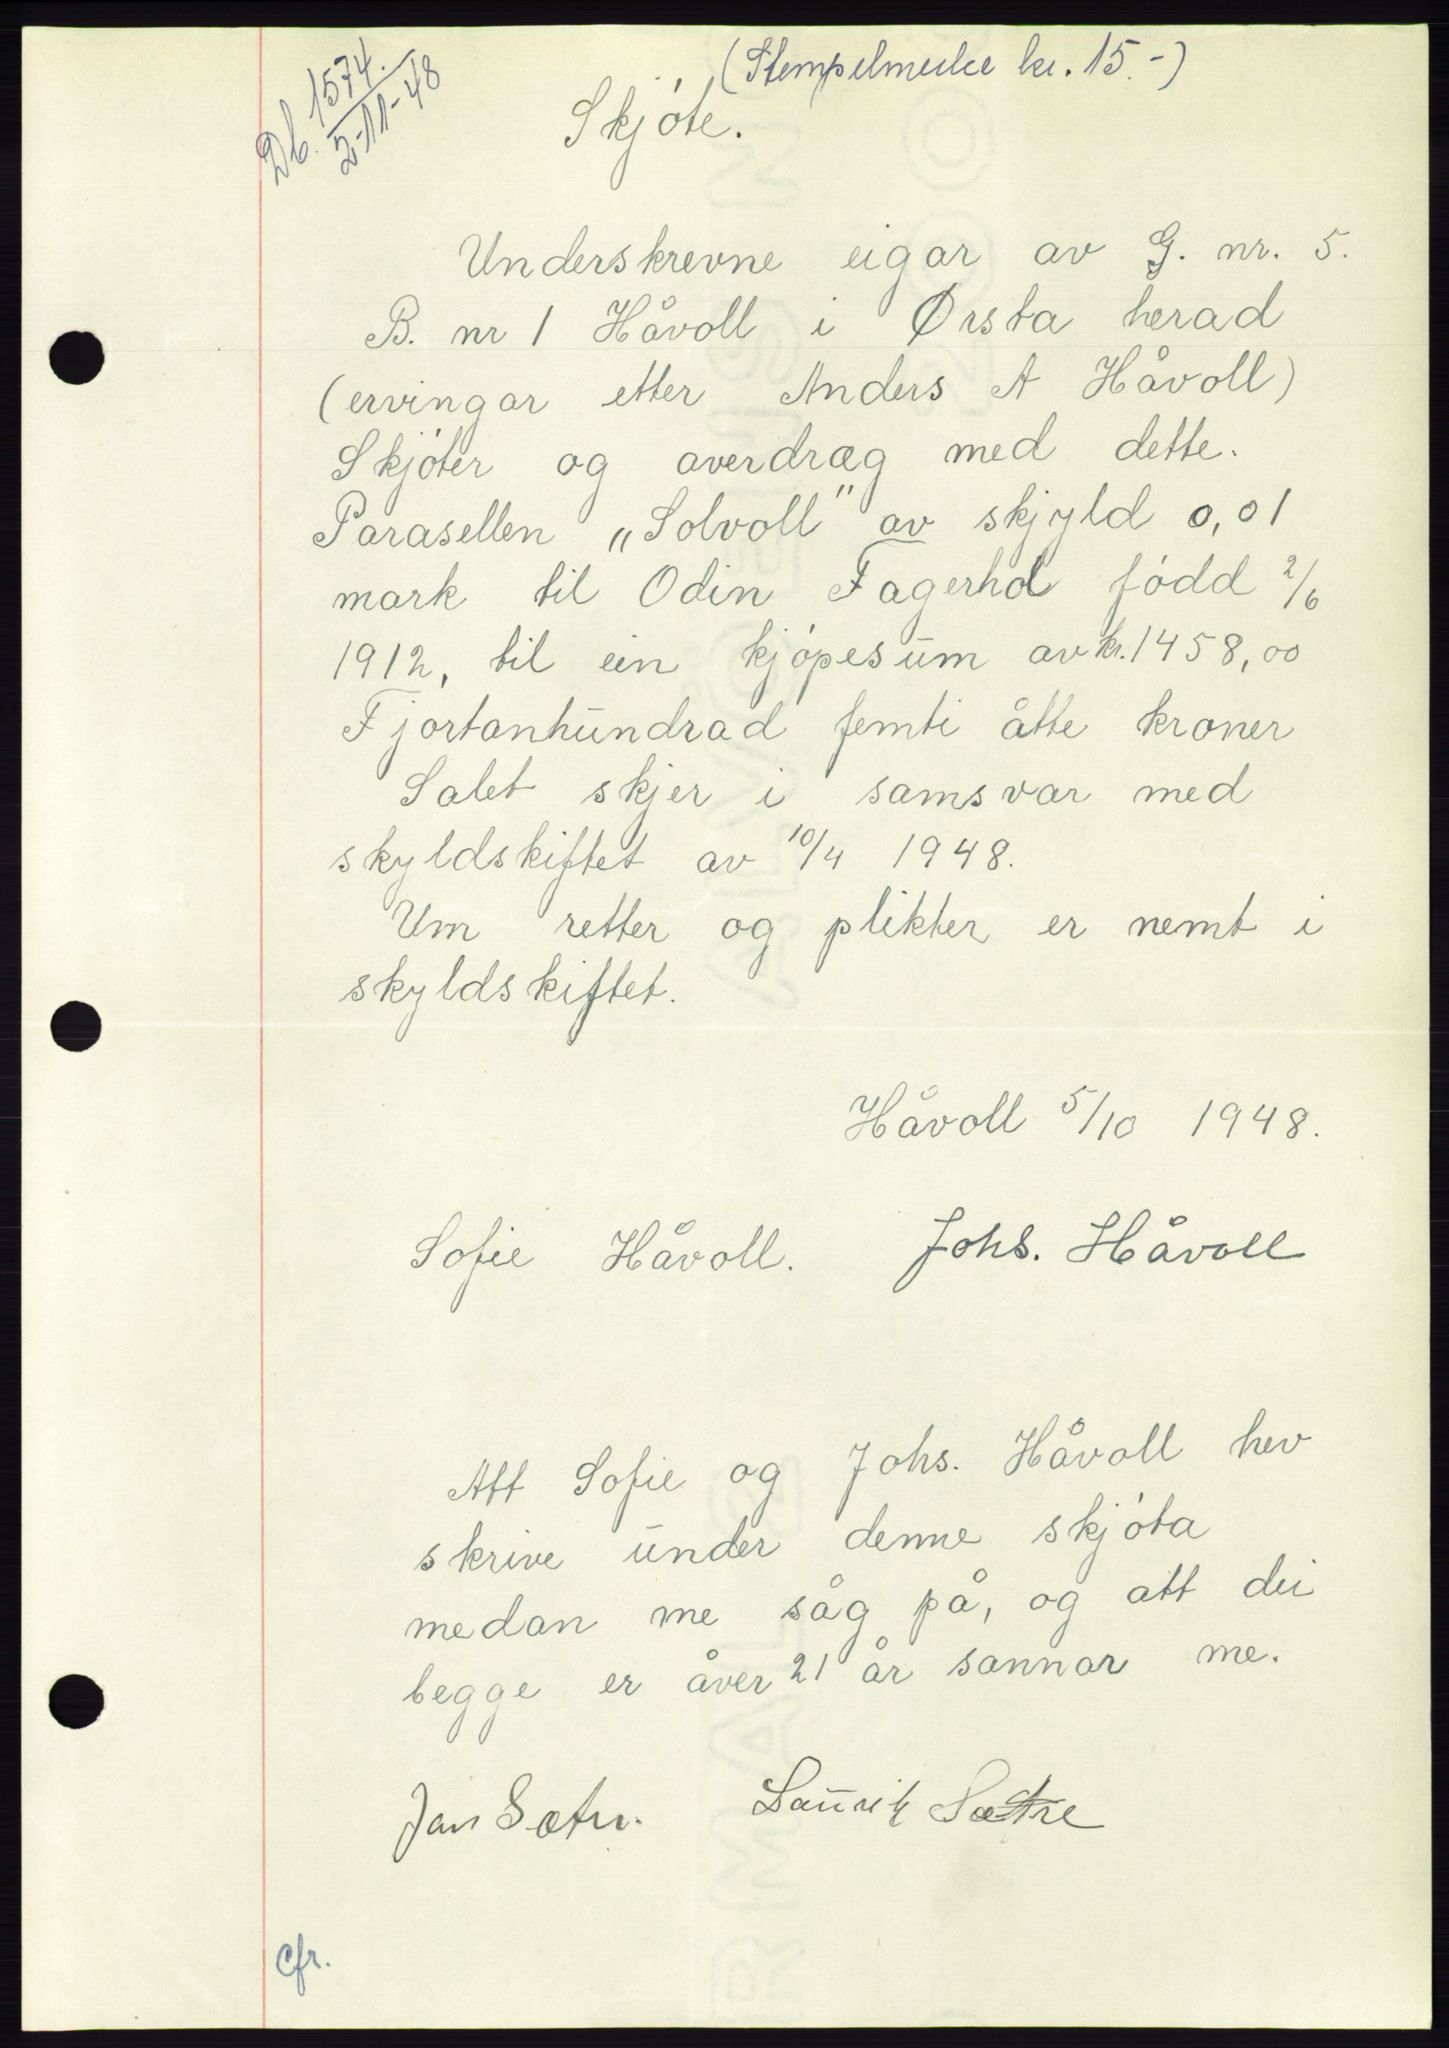 (Stempelmerke kr. 15.-)
Db. 1574.
2-11-48
Skjóte.
Underskrevne eigar av G. nr. 5.
B. nr 1 Håvoll i Ørsta herad
(ervingar etter Anders A Håvoll)
Skjóter og averdræg med dette.
Parasellen „Solvoll" av skjyld 0,01
mark til Odin Fagerhol fødd 2/6
1912, til ein kjópesum av kr. 1458,00
Fjortanhundrad femti åtte kroner
Salet skjer i samsvar med
skyldskiftet av 10/4 1948.
Um retter og plikter er nemt i
skyldskiftet.
Håvoll 5/10 1948.
Sofie Håvoll. Johs. Håvoll
Att Sofie og Johs. Håvoll hev
skrive under denne skjóta
medan me såg på, og att dei
begge er åver 21 år sannar me.
Jan Sætre. Laurik Sætre
Cfr.